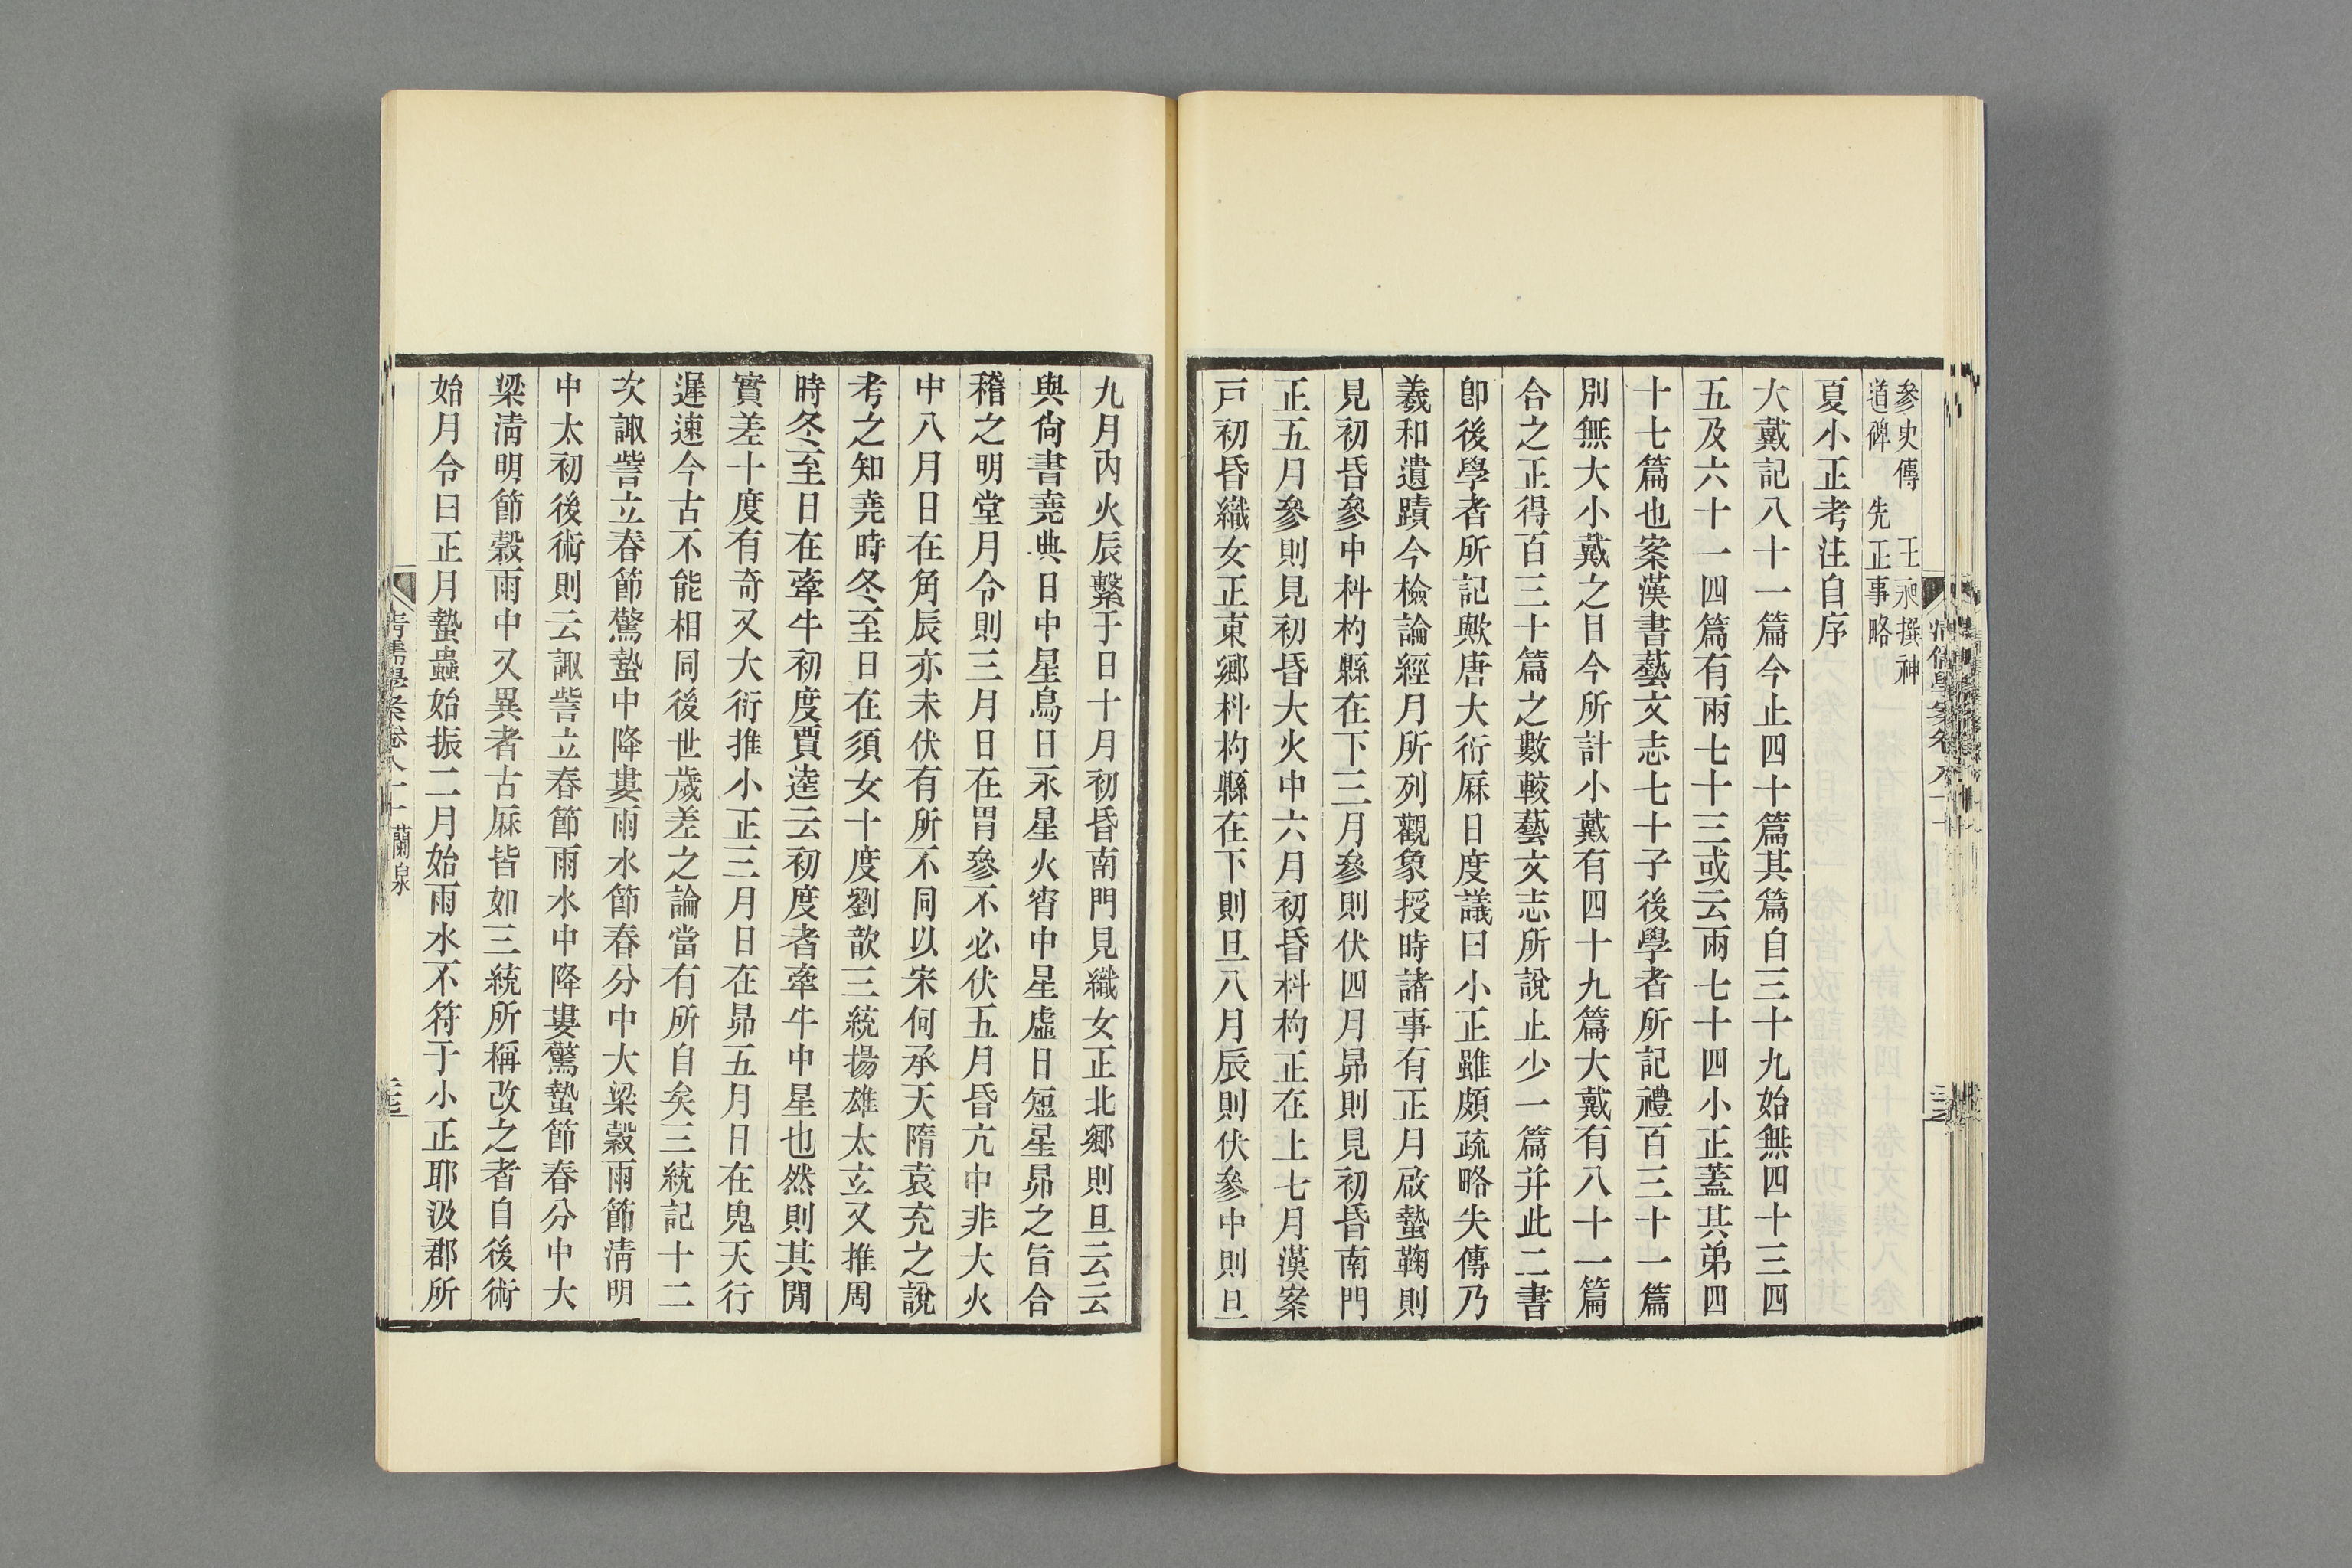 參史傳　王昶撰神
道碑　先正事略
夏小正考注自序
大戴記八十一篇今止四十篇其篇自三十九始無四十三四
五及六十一四篇有兩七十三或云兩七十四小正蓋其弟四
十七篇也案漢書藝文志七十子後學者所記禮百三十一篇
別無大小戴之目今所計小戴有四十九篇大戴有八十一篇
合之正得百三十篇之數較藝文志所說止少一篇并此二書
卽後學者所記歟唐大衍厤日度議曰小正雖頗疏略失傳乃
羲和遺蹟今檢論經月所列觀象授時諸事有正月啟蟄鞠則
見初昏參中枓杓縣在下三月參則伏四月昴則見初昏南門
正五月參則見初昏大火中六月初昏枓杓正在上七月漢案
戸初昏織女正東鄉枓杓縣在下則旦八月辰則伏參中則旦
九月內火辰繫于日十月初昏南門見織女正北鄉則旦云云
與尙書堯典日中星鳥日永星火宵中星虛日短星昴之旨合
稽之明堂月令則三月日在胃參不必伏五月昏亢中非大火
中八月日在角辰亦未伏有所不同以宋何承天隋袁充之說
考之知堯時冬至日在須女十度劉歆三統揚雄太玄又推周
時冬至日在牽牛初度賈逵云初度者牽牛中星也然則其閒
實差十度有奇又大衍推小正三月日在昴五月日在鬼天行
遲速今古不能相同後世歲差之論當有所自矣三統記十二
次諏訾立春節驚蟄中降婁雨水節春分中大梁穀雨節淸明
中太初後術則云諏訾立春節雨水中降婁驚蟄節春分中大
梁淸明節穀雨中又異者古厤皆如三統所稱改之者自後術
始月令曰正月蟄蟲始振二月始雨水不符于小正耶汲郡所
清儒學案卷八十一　蘭泉